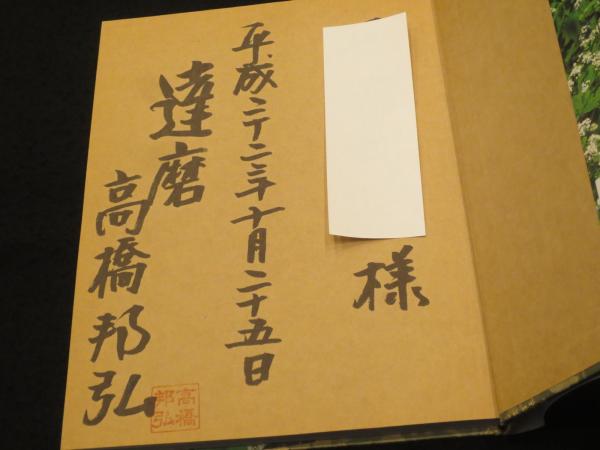 様
平成二十二年十月二十五日
達磨
高橋邦弘
高橋
邦弘